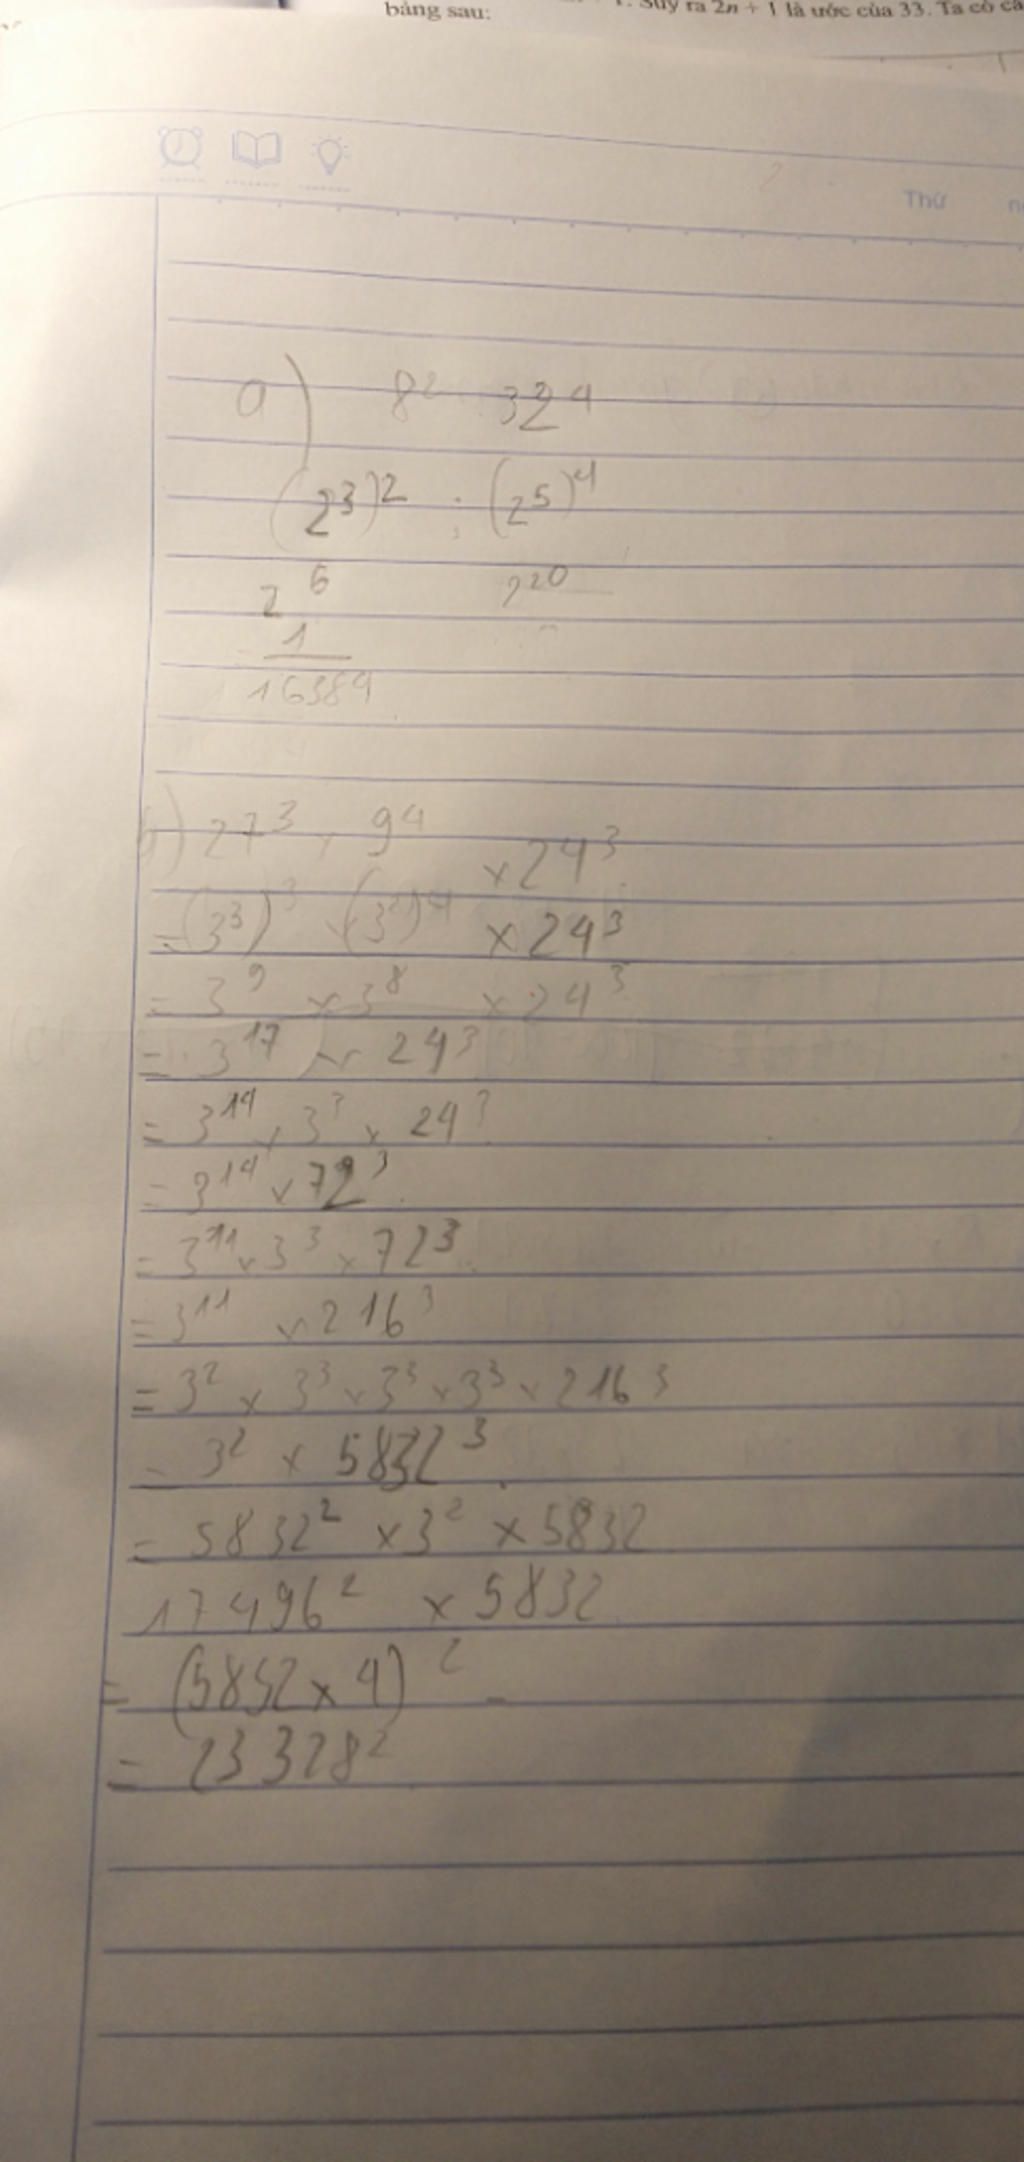 bảng sau:
Suy ra 2n + 1 là ước của 33. Ta có
Thứ
a) 8² 32⁴
(2³)² : (2⁵)⁴
2⁶ 2²⁰
1
16384
b) 27³ × 9⁴ × 24³
= (3³)³ × (3²)⁴ × 24³
= 3⁹ × 3⁸ × 24³
= 3¹⁷ × 24³
= 3¹⁴ × 3³ × 24³
= 3¹⁴ × 72³
= 3¹¹ × 3³ × 72³
= 3¹¹ × 216³
= 3² × 3³ × 3³ × 3³ × 216³
= 3² × 5832³
= 5832² × 3² × 5832
17496² × 5832
= (5852 × 4)²
= 23328²